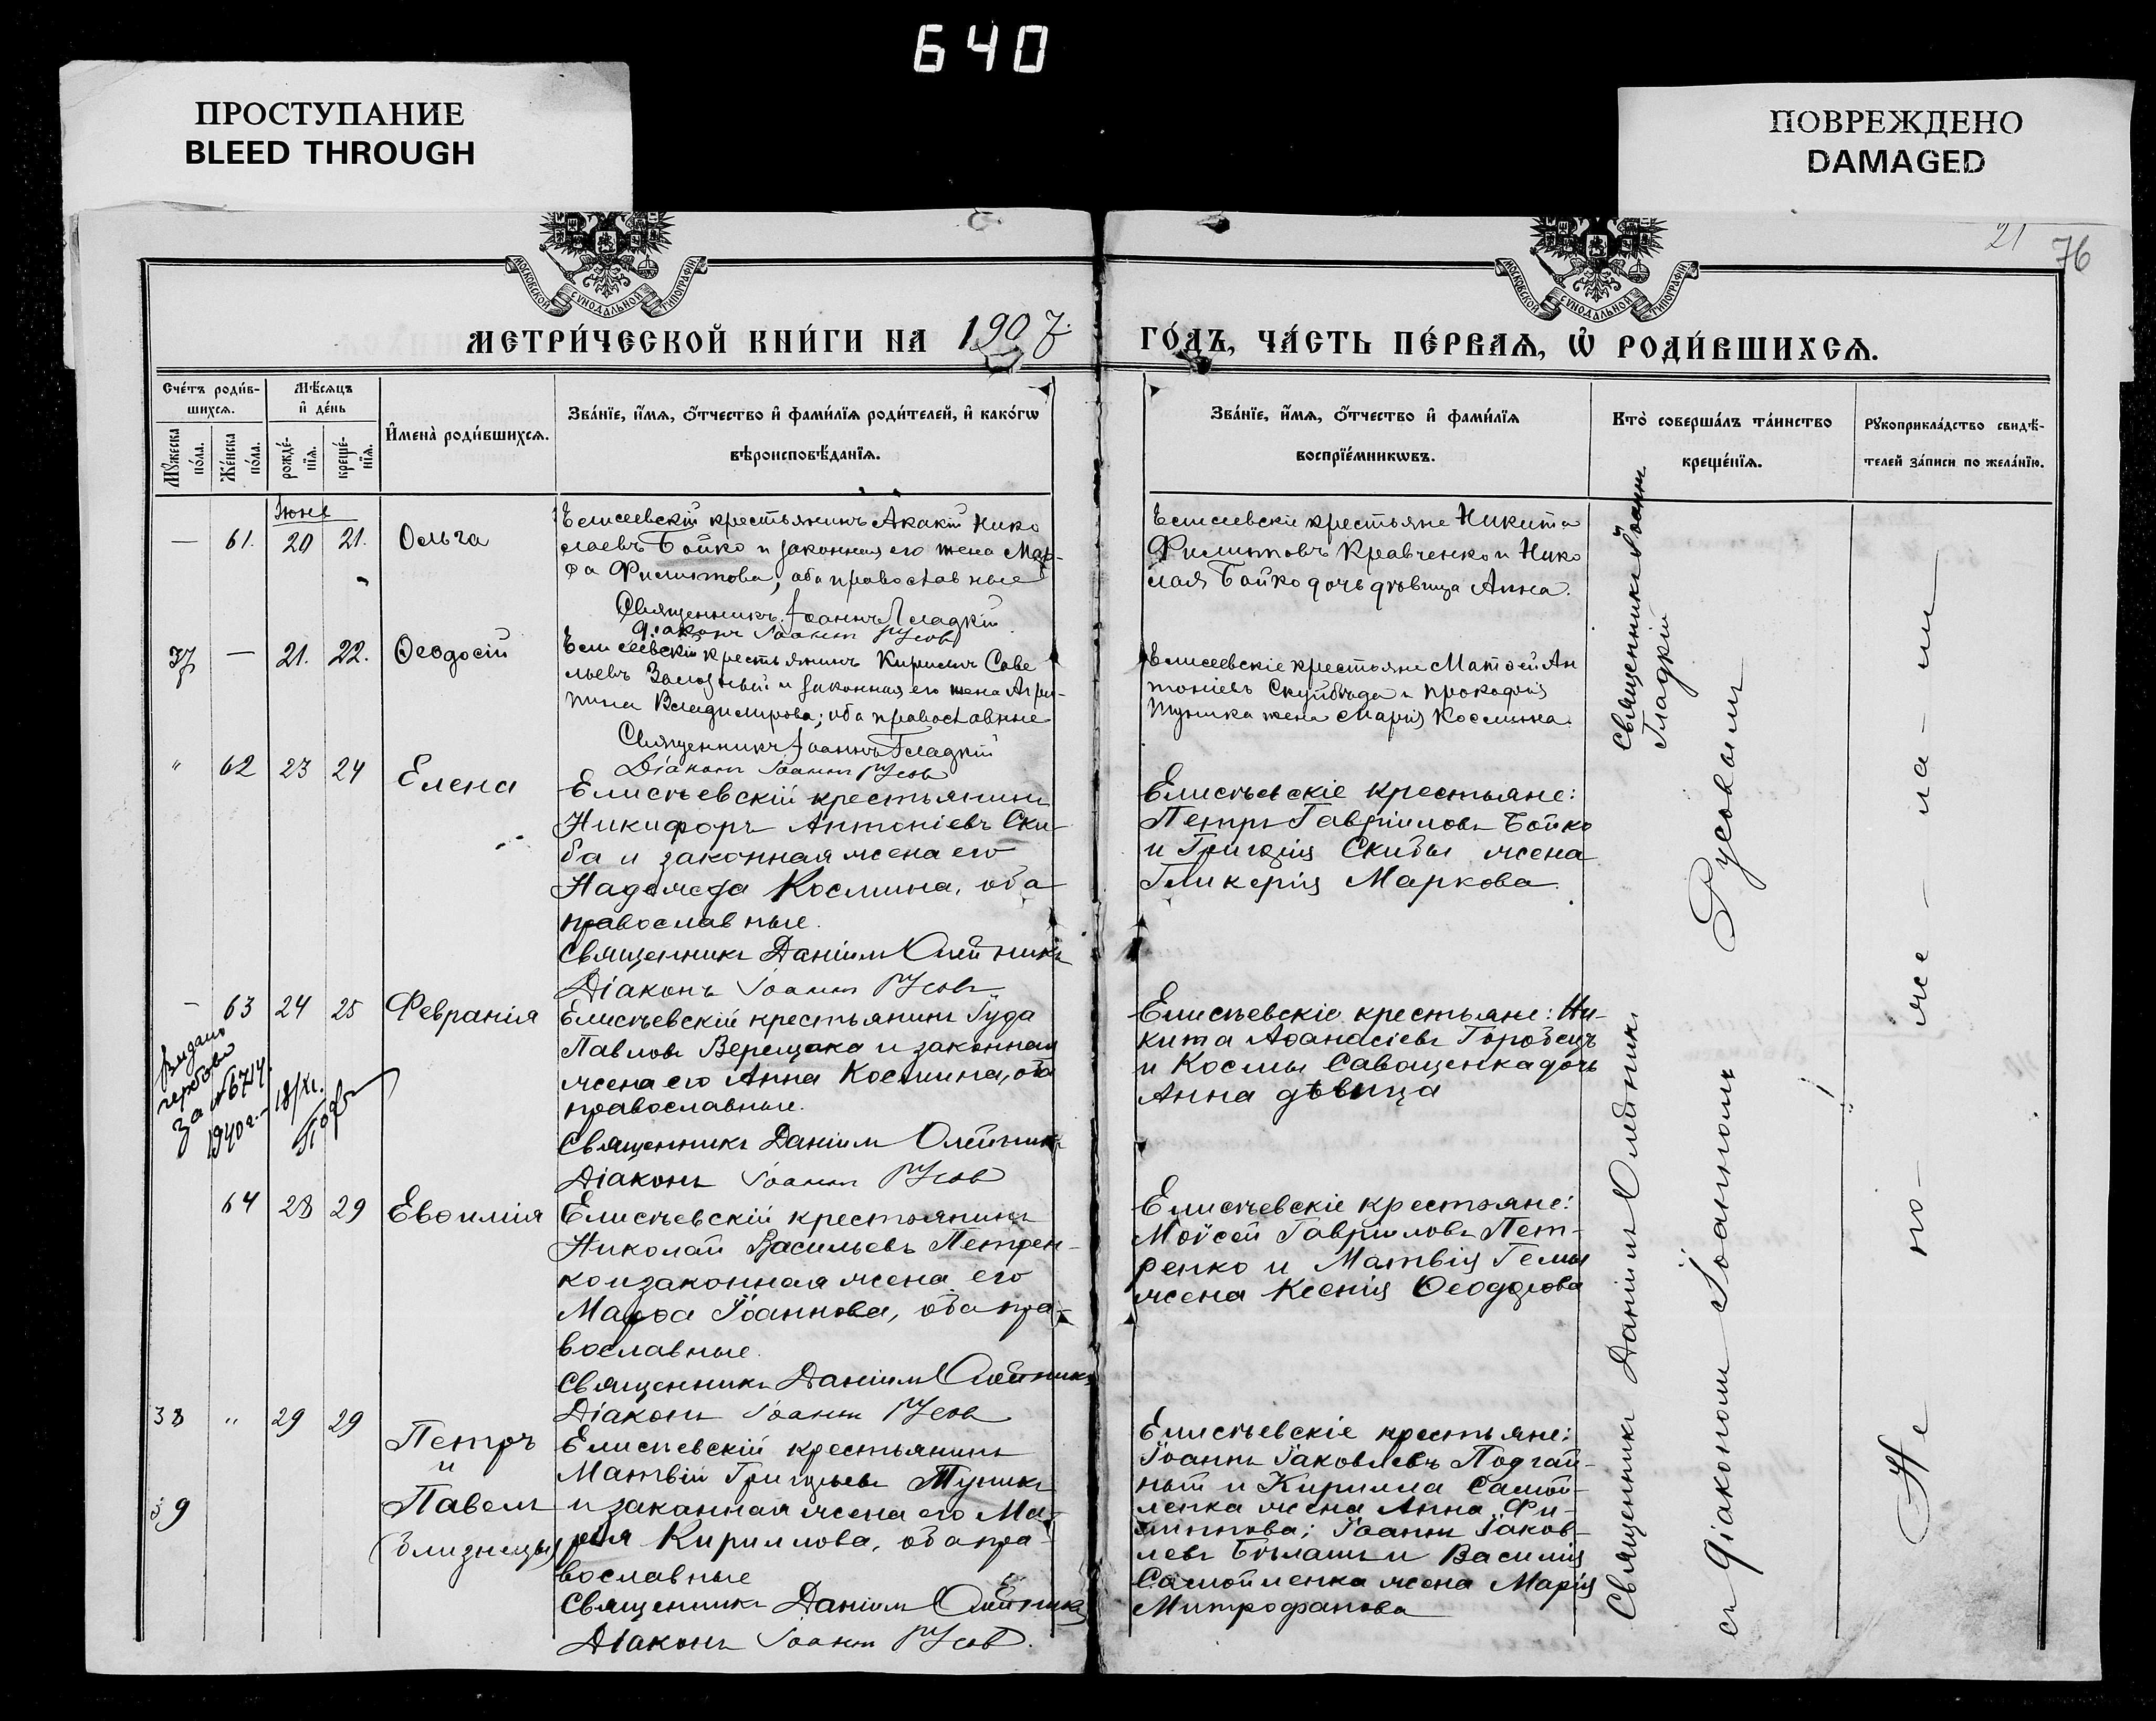 640
ПРОСТУПАНИЕ
BLEED THROUGH
ПОВРЕЖДЕНО
DAMAGED
21 76
МОСКОВСКОЙ СѴНОДАЛЬНОЙ ТИПОГРАФІИ
МОСКОВСКОЙ СѴНОДАЛЬНОЙ ТИПОГРАФІИ
МЕТРИ́ЧЕСКОЙ КНИ́ГИ НА 1907 г.
ГО́ДЪ, ЧА́СТЬ ПЕ́РВАѦ, Ѡ҆ РОДИ́ВШИХСѦ.
Сче́тъ роди́в-
шихсѧ.
Мꙋ́жеска по́ла.
Же́нска по́ла.
Мѣ́сѧцъ
и҆ де́нь
рожде́-
нїѧ.
креще́-
нїѧ.
И҆мена̀ роди́вшихсѧ.
Зва́нїе, и҆́мѧ, ѻ҆́тчество и҆ фами́лїѧ роди́телей, и҆ како́гѡ
вѣроисповѣ́данїѧ.
Зва́нїе, и҆́мѧ, ѻ҆́тчество и҆ фами́лїѧ
воспрїе́мникѡвъ.
Кто̀ соверша́лъ та́инство
креще́нїѧ.
Рꙋкоприкла́дство свидѣ́-
телей за́писи по жела́нїю.
Іюня
— 61. 20 21. Ольга
Елисеевскій крестьянинъ Акакій Нико
лаевъ Бойко и законная его жена Мар-
ѳа Филиппова; оба православные
Священникъ Іоаннъ Гладкій
Діаконъ Іоаннъ Русов
Елисеевскіе крестьяне Никита
Филипповъ Кравченко и Нико
лая Бойко дочь дѣвица Анна.
37 — 21. 22. Ѳеодосій
Елисеевскій крестьянинъ Кириллъ Саве
льевъ и законная его жена Агри-
пина Владимирова; оба православные
Священникъ Іоаннъ Гладкій
Діаконъ Іоаннъ Русов
Елисеевскіе крестьяне Матѳей Ан
тоніевъ и Прокофія
Тупика жена Марія Космина.
Священникъ Іоаннъ
Гладкій
" 62 23 24 Елена
Елисѣевскій крестьянинъ
Никифоръ Антоніевъ Ски-
ба и законная жена его
Надежда Космина, оба
православные.
Священникъ Даніилъ Олейникъ
Діаконъ Іоаннъ Русовъ
Елисѣевскіе крестьяне:
Петръ Гавріиловъ Бойко
и Григорія Скибы жена
Гликерія Маркова.
— 63 24 25 Февранія
Елисѣевскій крестьянинъ Іуда
Павловъ Верещака и законная
жена его Анна Космина, оба
православные.
Священникъ Даніилъ Олейникъ
Діаконъ Іоаннъ Русов
Елисѣевскіе крестьяне: Ни-
кита Аѳанасіевъ Горобецъ
и Космы Саващенка дочь
Анна дѣвица
Видано
за № 6714.
1940 г. 18/XI.
64 28 29 Евѳимія
Елисѣевскій крестьянинъ
Николай Васильевъ Петрен-
ко и законная жена его
Марѳа Іоаннова, оба пра-
вославные.
Священникъ Даніилъ Олейникъ
Діаконъ Іоаннъ Русов
Елисѣевскіе крестьяне:
Моѵсей Гавріиловъ Пет-
ренко и Матвія Гемы
жена Ксенія Ѳеодорова
38 " 29 29 Петръ
и
39 Павелъ
(близнецы)
Елисѣевскій крестьянинъ
Матвій Григорьевъ Тупикъ
и законная жена его Ма-
рія Кириллова, оба пра-
вославные
Священникъ Даніилъ Олейникъ
Діаконъ Іоаннъ Русов.
Елисѣевскіе крестьяне:
Іоаннъ Іаковлевъ Подгай-
ный и Кирилла Самой-
ленка жена Анна Фи-
липпова; Іоаннъ Іаков-
левъ Бѣлашъ и Василія
Самойленка жена Марія
Митрофанова
Священникъ Даніилъ Олейникъ
съ діакономъ Іоанномъ Русовымъ
Не по-же-ла-ли